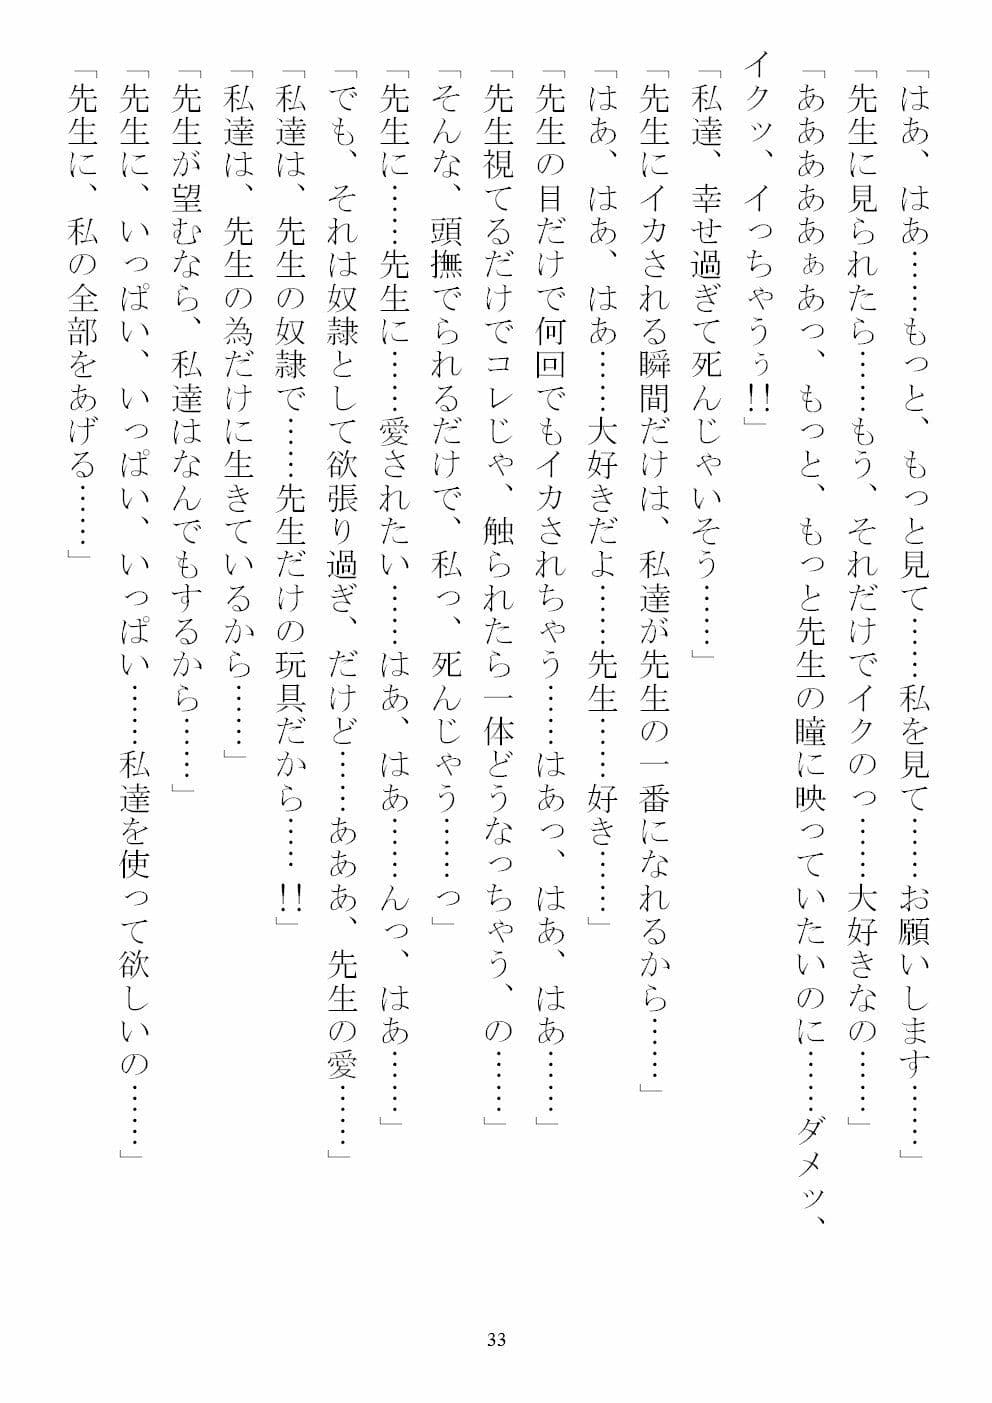 「はあ、はあ……もっと、もっと見て……私を見て……お願いします……」
「先生に見られたら……もう、それだけでイクのっ……大好きなの……」
「ああああああぁあっ、もっと、もっと先生の瞳に映っていたいのに……ダメッ、
イクッ、イっちゃうぅ!!」
「私達、幸せ過ぎて死んじゃいそう……」
「先生にイカされる瞬間だけは、私達が先生の一番になれるから……」
「はあ、はあ、はあ……大好きだよ……先生……好き……」
「先生の目だけで何回でもイカされちゃう……はあっ、はあ、はあ……」
「先生視てるだけでコレじゃ、触られたら一体どうなっちゃう、の……」
「そんな、頭撫でられるだけで、私っ、死んじゃう……っ」
「先生に……先生に……愛されたい……はあ、はあ……んっ、はあ……」
「でも、それは奴隷として欲張り過ぎ、だけど……あああ、先生の愛……」
「私達は、先生の奴隷で……先生だけの玩具だから……!!」
「私達は、先生の為だけに生きているから……」
「先生が望むなら、私達はなんでもするから……」
「先生に、いっぱい、いっぱい、いっぱい……私達を使って欲しいの……」
「先生に、私の全部をあげる……」
33